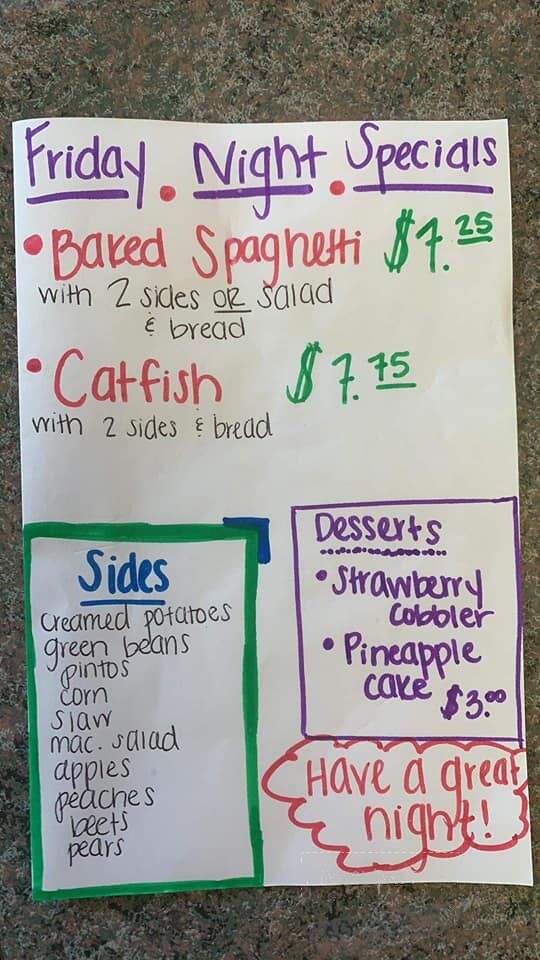 Friday . Night . Specials
• Baked Spaghetti $7.25
with 2 sides OR salad
& bread
• Catfish $7.75
with 2 sides & bread
Sides
creamed potatoes
green beans
pintos
corn
slaw
mac. salad
apples
peaches
beets
pears
Desserts
• Strawberry
cobbler
• Pineapple
cake $3.00
Have a great
night!